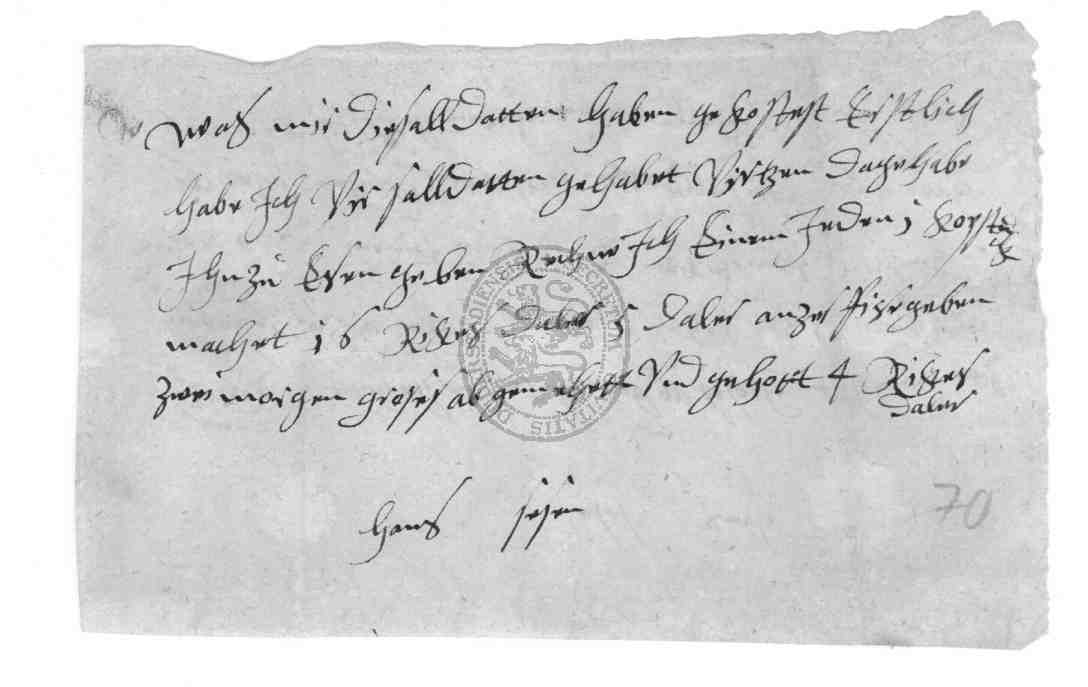 Waß mir die salldatten haben gekostet Erstlich
habe Ich Vir salldatten gehabet Virtzen dage habe
Ihn zu Esen geben Rechne Ich Einem Jeden j
machet 16 Rikes daler 5 daler an
zwei morgen groses ab gemehett Vnd gehott 4 Rikes
daler
Hans
70